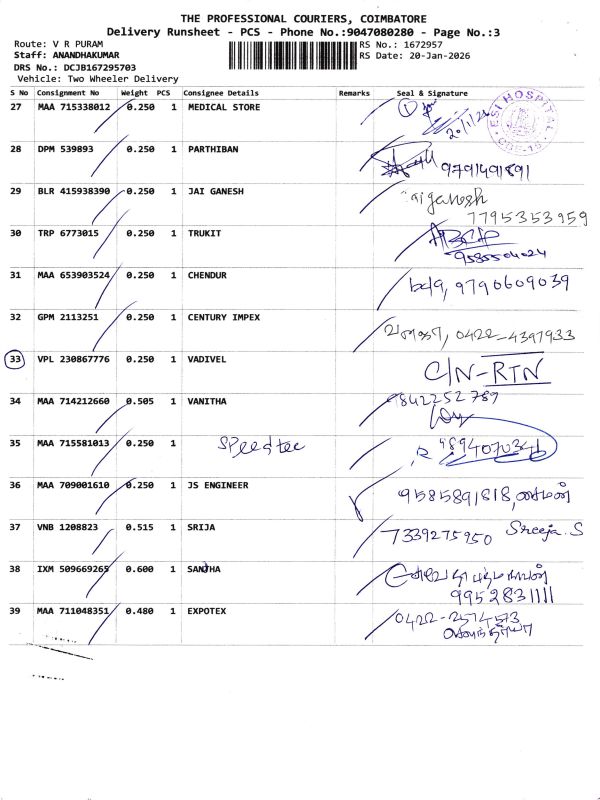 THE PROFESSIONAL COURIERS, COIMBATORE
Delivery Runsheet - PCS - Phone No.:9047080280 - Page No.:3
Route: V R PURAM
Staff: ANANDHAKUMAR
DRS No.: DCJB167295703
Vehicle: Two Wheeler Delivery
RS No.: 1672957
RS Date: 20-Jan-2026
S No Consignment No Weight PCS Consignee Details Remarks Seal & Signature
27 MAA 715338012 0.250 1 MEDICAL STORE 20/1/26
ESI HOSPITAL
28 DPM 539893 0.250 1 PARTHIBAN 9791491891
29 BLR 415938390 0.250 1 JAI GANESH Jaiganesh
7795353959
30 TRP 6773015 0.250 1 TRUKIT
9585504024
31 MAA 653903524 0.250 1 CHENDUR 9790609039
32 GPM 2113251 0.250 1 CENTURY IMPEX 0422-4397933
33 VPL 230867776 0.250 1 VADIVEL C/N-RTN
34 MAA 714212660 0.505 1 VANITHA 9842252789
35 MAA 715581013 0.250 1 Speedtec
36 MAA 709001610 0.250 1 JS ENGINEER 9585891818,
37 VNB 1208823 0.515 1 SRIJA 7339275950 Sreeja.S
38 IXM 509669265 0.600 1 SANTHA
9952831111
39 MAA 711048351 0.480 1 EXPOTEX 0422-2574573